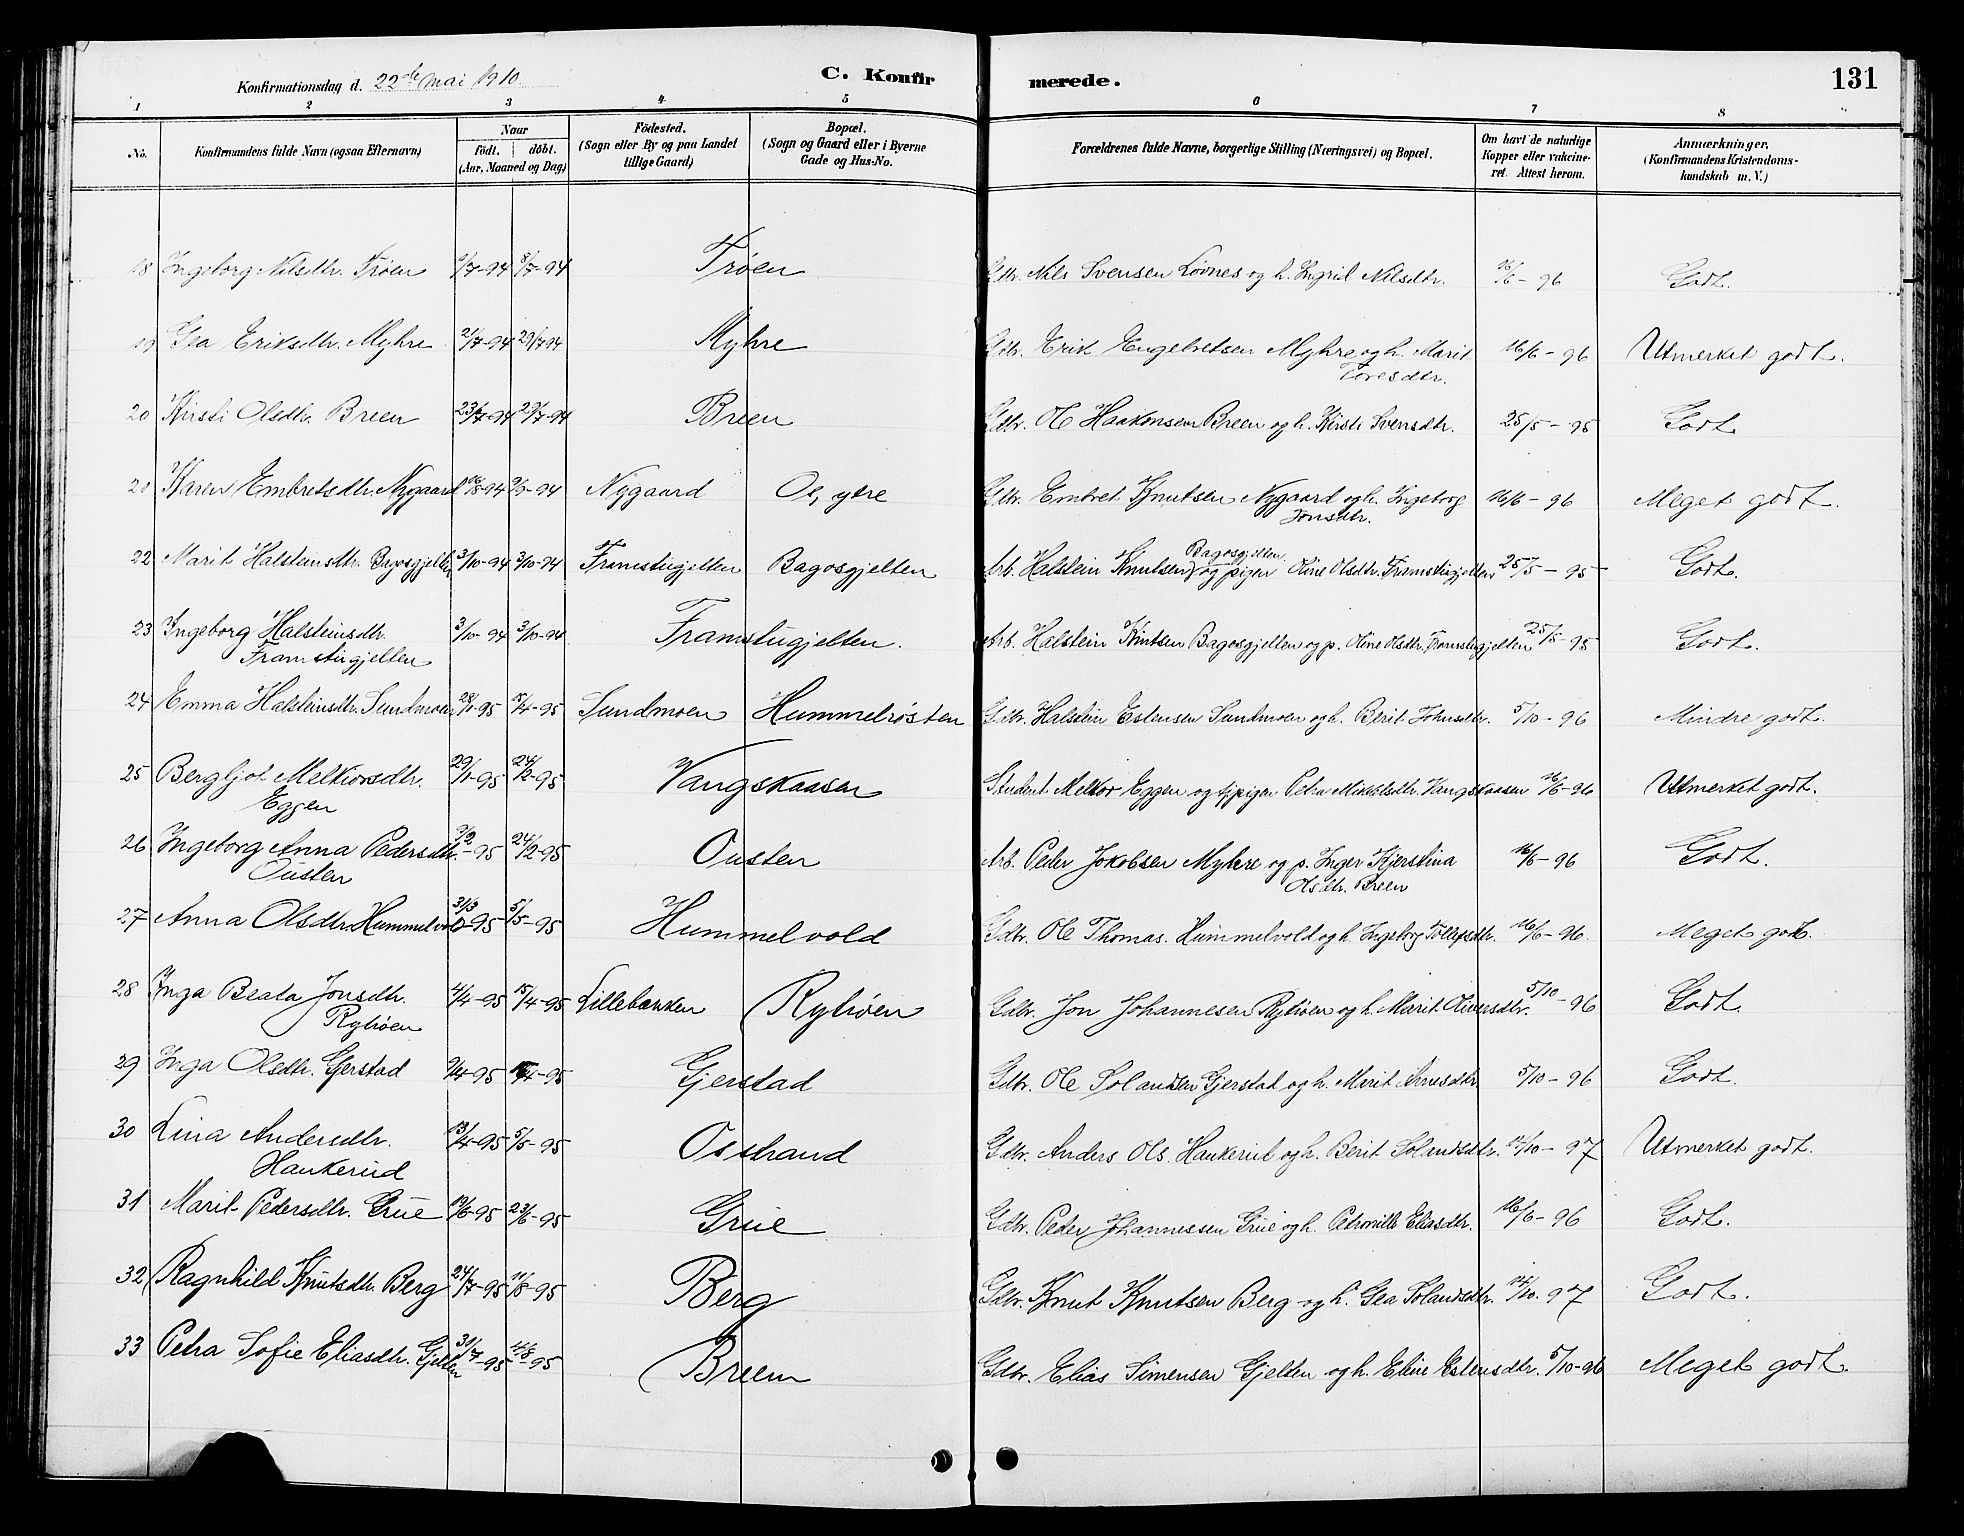 Konfirmationsdag d. 22de Mai 1910. C. Konfirmerede. 131
1 2 3 4 5 6 7 8
No. Konfirmandens fulde Navn (ogsaa Efternavn) Naar født. døbt. (Aar, Maaned og Dag) Födested. (Sogn eller By og paa Landet tillige Gaard) Bopæl. (Sogn og Gaard eller i Byerne Gade og Hus-No. Forældrenes fulde Navne, borgerlige Stilling (Næringsvei) og Bopæl. Om havt de naturlige Kopper eller vakcineret. Attest herom. Anmærkninger, (Konfirmandens Kristendomskundskab m. V.)
18 Ingeborg Nilsdtr. Trøen 1/7-94 8/7-94 Trøen Gdbr. Nils Svensen Løvnes og h. Ingrid Nilsdtr. 16/6-96 Godt.
19 Gea Eriksdtr. Myhre 21/7-94 29/7-94 Myhre Gdbr. Erik Engebretsen Myhre og h. Marit Toresdtr. 16/6-96 Utmerket godt.
20 Kirsti Olsdtr. Breen 23/7-94 29/7-94 Breen Gdbr. Ole Haakonsen Breen og h. Kirsti Svensdtr. 25/5-95 Godt
21 Karen Embretsdtr. Nygaard 16/8-94 9/9-94 Nygaard Os, ytre Gdbr. Embret Knutsen Nygaard og h. Ingeborg Jonsdtr. 16/6-96 Meget godt.
22 Marit Halsteinsdtr. Bagosgjelten 3/10-94 3/10-94 Framstugjelten Bagosgjelten Arb. Halstein Knutsen Bagosgjelten og pigen Oline Olsdtr. Framstugjelten 25/5-95 Godt.
23 Ingeborg Halsteinsdtr. Framstugjelten 3/10-94 3/10-94 Framstugjelten. Arb. Halstein Knutsen Bagosgjelten og p. Oline Olsdtr. Framstugjelten 25/5-95 Godt.
24 Emma Halsteinsdtr. Sundmoen 28/1-95 15/4-95 Sundmoen Hummelrøsten Gdbr. Halstein Estensen Sundmoen og h. Berit Johnsdtr. 5/10-96 Mindre godt.
25 Bergljot Melkiorsdtr. Eggen 29/1-95 24/2-95 Vangskaasen Student Melkior Eggen og tjpigen Petra Mikkelsdtr. Vangskaasen 16/6-96 Utmerket godt.
26 Ingeborg Anna Pedersdtr. Ousten 9/2-95 24/2-95 Ousten Arb. Peder Jokobsen Myhre og p. Inger Kjerstina Olsdtr. Breen 16/6-96 Godt.
27 Anna Olsdtr. Hummelvold 31/3-95 5/5-95 Hummelvold Gdbr. Ole Thomas. Hummelvold og h. Ingeborg Tollefsdtr. 16/6-96. Meget godt.
28 Inga Beata Jonsdtr. Ryhöen 4/4-95 15/4-95 Lillebakken Ryhöen Gdbr. Jon Johannesen Ryhöen og h. Marit Oliversdtr. 5/10-96 Godt.
29 Inga Olsdtr. Gjerstad 9/4-95 15/4-95 Gjerstad Gdbr. Ole Solandsen Gjerstad og h. Marit Arnesdtr 5/10-96 Godt.
30 Lina Andersdtr. Hankerud 13/4-95 5/5-95 Osstrand Gdbr. Anders Ols. Hankerud og h. Berit Solandsdtr. 14/10-97 Utmerket godt.
31 Marit Pedersdtr. Grue 19/6-95 23/6-95 Grue Gdbr. Peder Johannessen Grue og h. Petronille Eliasdtr. 16/6-96 Godt.
32 Ragnhild Knutsdtr. Berg 24/7-95 11/8-95 Berg Gdbr. Knut Knutsen Berg og h. Gea Solandsdtr. 14/10.97 Godt.
33 Petra Sofie Eliasdtr. Gjelten 30/7-95 4/8-95 Breen Gdbr. Elias Simensen Gjelten og h. Eline Estensdtr. 5/10-96 Meget godt.